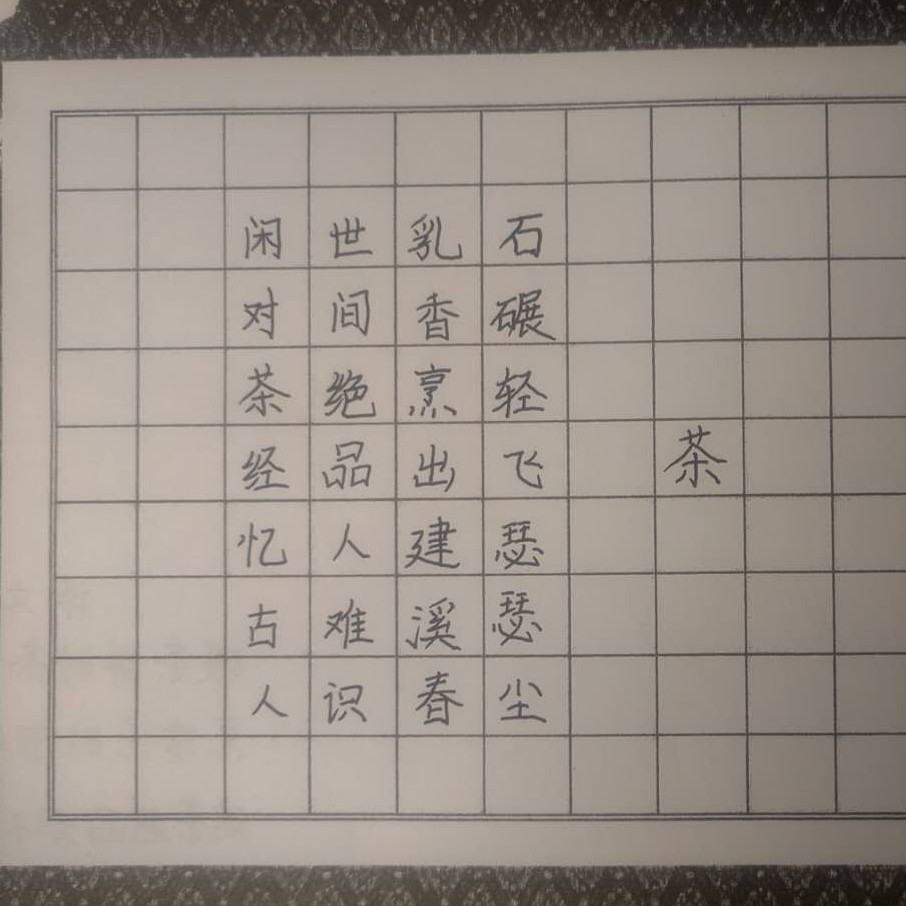 茶
石碾轻飞瑟瑟尘
乳香烹出建溪春
世间绝品人难识
闲对茶经忆古人